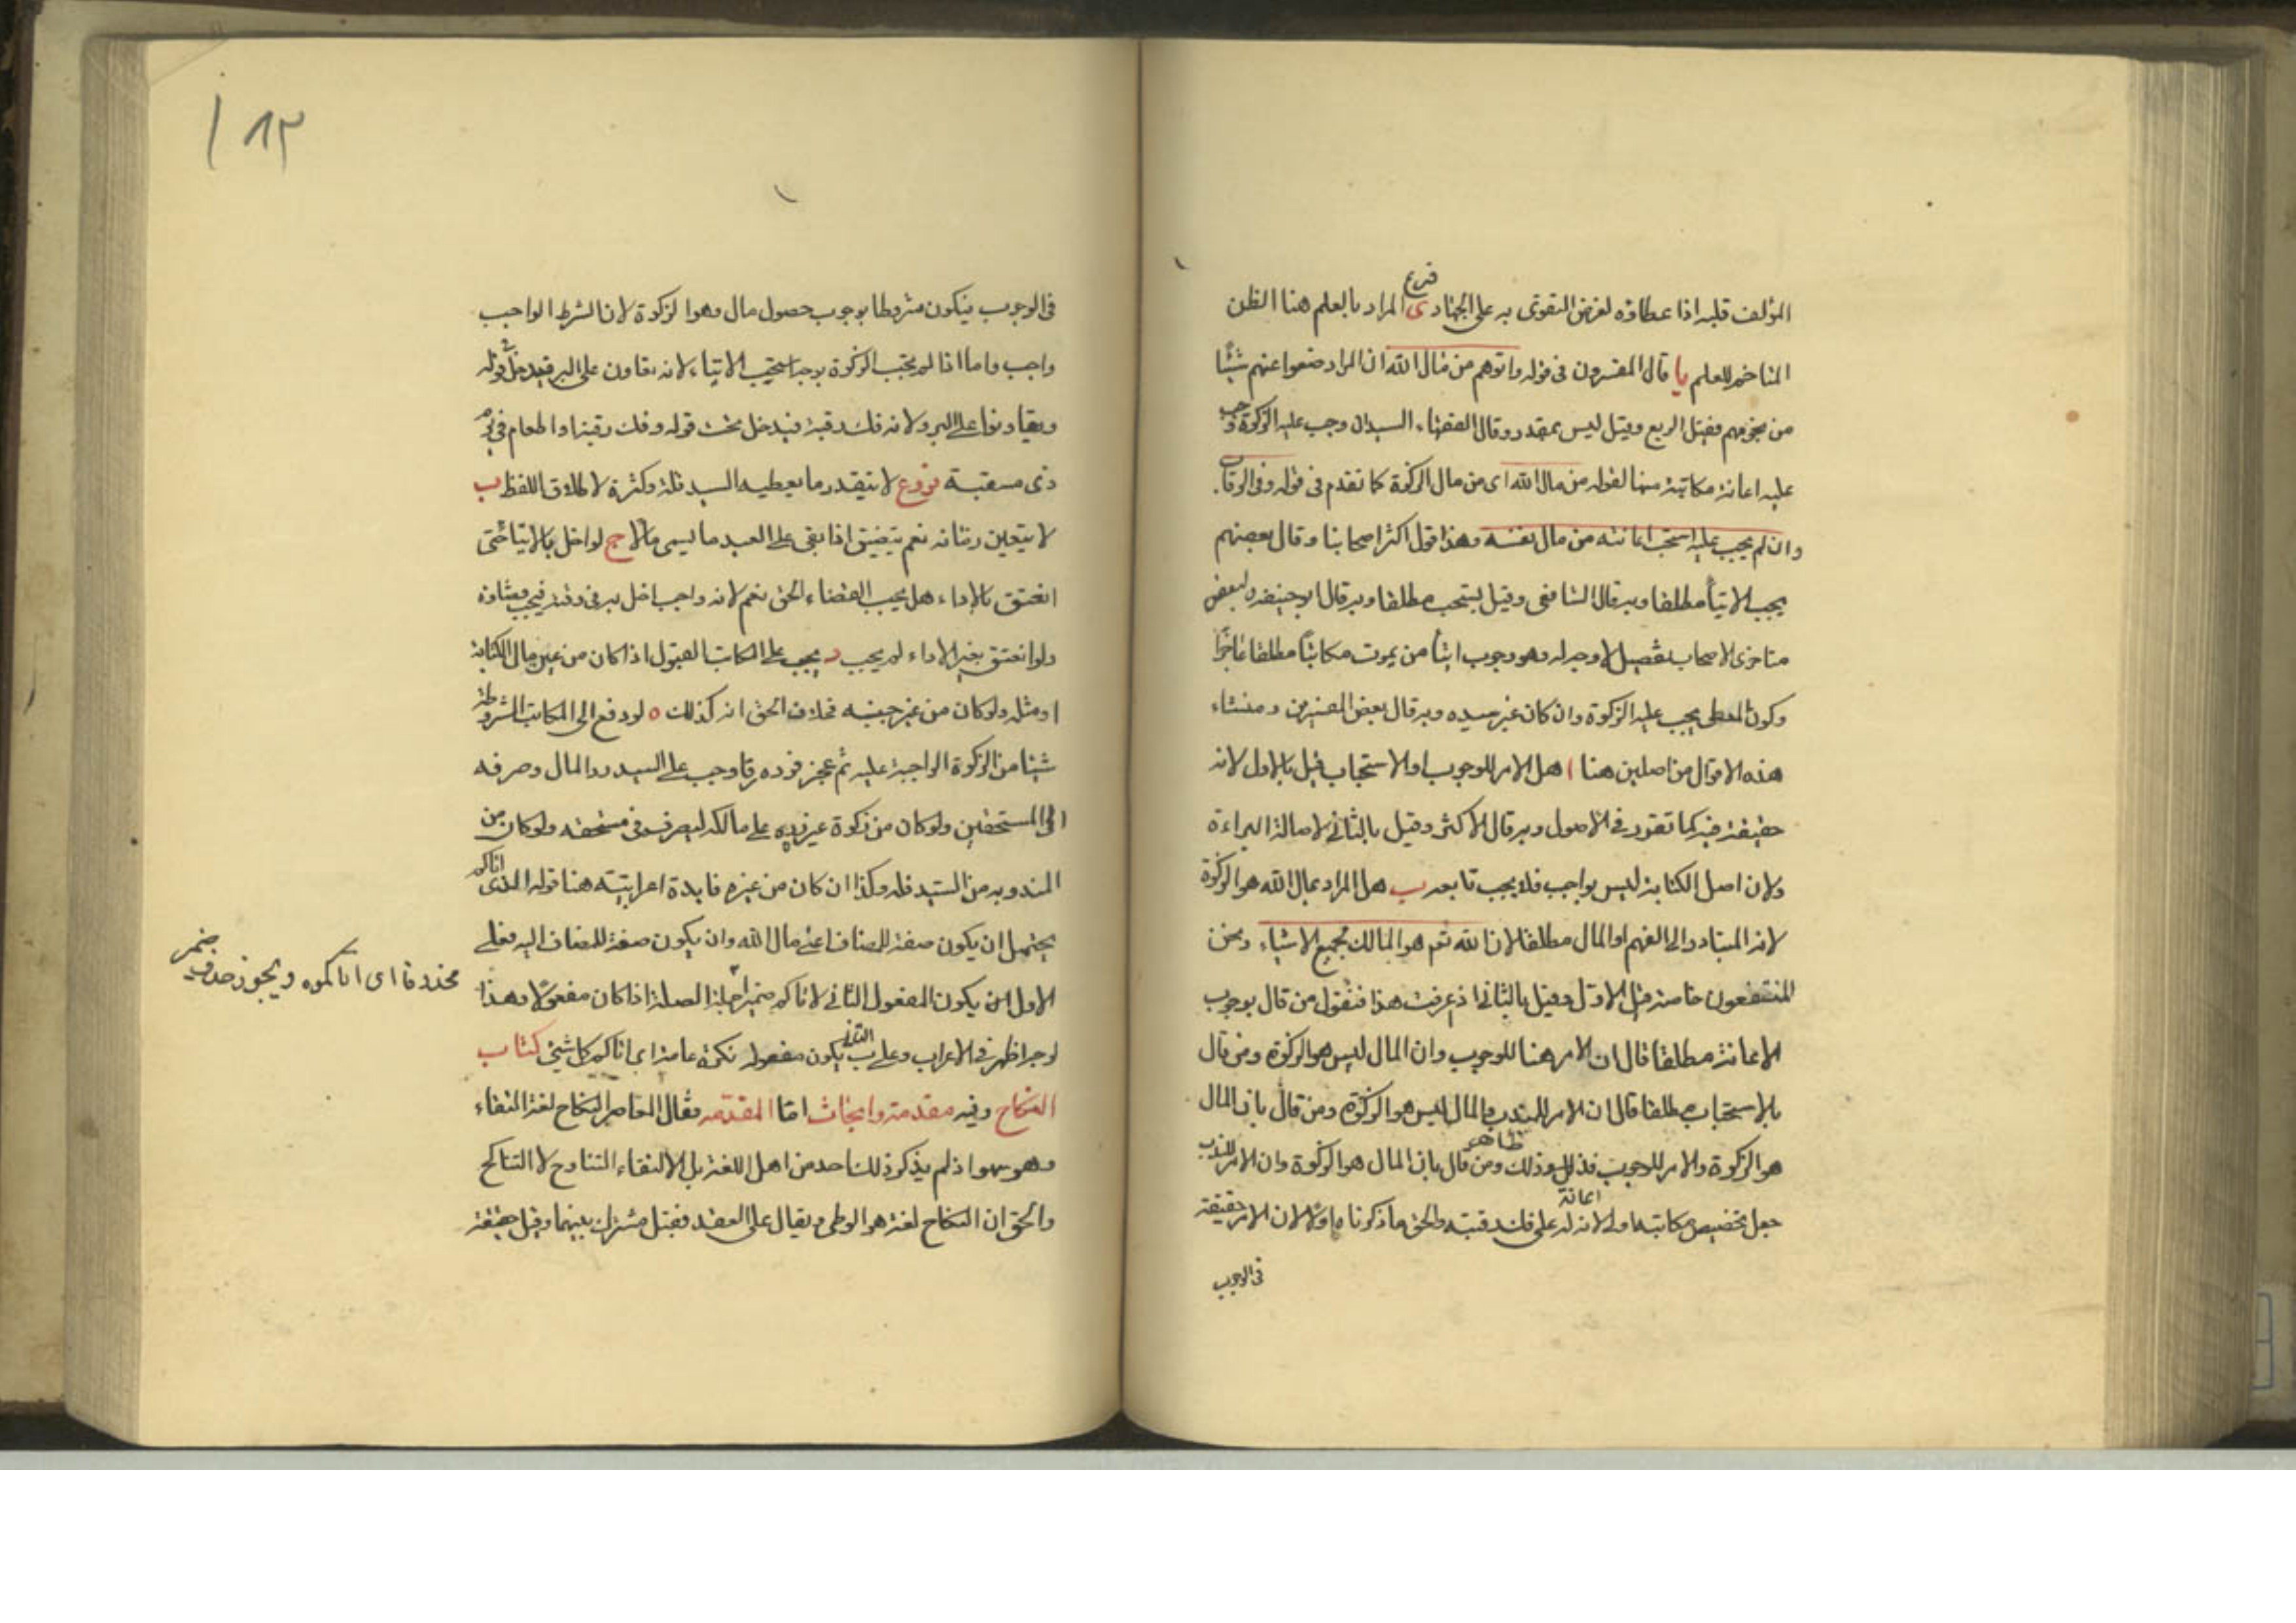 المؤلف قلبه اذا عطاؤه لغرض التقوى به على الجهاد ى المراد بالعلم هنا الظن
فرع
المتاخم للعلم يا قال المفسرون فى قوله واتوهم من مال الله ان المراد ضعوا عنهم شيئا
من نجومهم فقيل الربع وقيل ليس بمقدر وقال الفقهاء السيد ان وجب عليه الزكوة وجب
عليه اعانة مكاتبه منها لقوله من مال الله اى من مال الزكوة كما تقدم فى قوله وفى الرقاب
وان لم يجب عليه استحب اعانته من مال نفسه وهذا قول اكثر اصحابنا وقال بعضهم
يجب الايتاء مطلقا وبه قال الشافعى وقيل يستحب مطلقا وبه قال ابوحنيفه ولبعض
متاخرى الاصحاب تفصيل لا وجه له وهو وجوب ايتاء من يموت مكاتبا مطلقا عاجزا
وكون المعطى يجب عليه الزكوة وان كان غير سيده وبه قال بعض المفسرين ومنشاء
هذه الاقوال من اصلين هنا ا هل الامر للوجوب او للاستحباب قيل بالاول لانه
حقيقة فيه كما تقرر فى الاصول وبه قال الاكثر وقيل بالثانى لاصالة البراءة
ولان اصل الكتابة ليس بواجب فلا يجب تابعه ب هل المراد بمال الله هو الزكوة
لانه المتبادر الى الفهم او المال مطلقا لان الله تع هو المالك لجميع الاشياء ونحن
المنتفعون خاصة قيل الاول وقيل بالثانى اذ عرفت هذا فنقول من قال بوجوب
الاعانة مطلقا قال ان الامر هنا للوجوب وان المال ليس هو الزكوة ومن قال
بالاستحباب مطلقا قال ان الامر للندب والمال ليس هو الزكوة ومن قال بان المال
هو الزكوة والامر للوجوب فذلك ومن قال بان المال هو الزكوة وان الامر للندب
ظاهر
جعل تخصيص مكاتبه اولى لانه له على فك رقبته والحق ما ذكرناه اولا لان الامر حقيقة
اعانة
فى الوجوب
١٨٢
فى الوجوب فيكون مشروطا بوجوب حصول مال وهو الزكوة لان الشرط الواجب
واجب واما اذا لم يجب الزكوة يوجب استحب الايتاء لانه تعاون على البر فيدخل فى قوله
وتعاونوا على البر ولانه فك رقبة فيدخل تحت قوله وفك رقبة او اطعام فى يوم
ذى مسغبة فروع لا يتقدر ما يعطيه السيد قلة وكثرة لاطلاق اللفظ ب
لا يتعين زمانه نعم يتضيق اذا بقى على العبد ما يسمى مالا ج لو اخل بالايتاء حتى
انعتق بالاداء هل يجب القضاء الحق نعم لانه واجب اخل به فى وقته فيجب قضاؤه
ولو انعتق بغير الاداء لم يجب د يجب على المكاتب القبول اذا كان من عين مال الكتابة
او مثله ولو كان من غير جنسه فخلاف الحق انه كذلك ه لو دفع الى المكاتب المشروطة
شيئا من الزكوة الواجبة عليه ثم عجز فرده رقا وجب على السيد رد المال وصرفه
الى المستحقين ولو كان من زكوة غيره رده على مالكه ليصرفه فى مستحقه ولو كان من
المندوبة من السيد فله وكذا ان كان من غيره فايدة اعرابيته هنا قوله الذى اتاكم
يحتمل ان يكون صفة للمضاف اعنى مال الله وان يكون صفة للمضاف اليه فعلى
الاول ان يكون المفعول الثانى لاتاكم ضميرا لجملة الصلة اذا كان مفعولا وهذا
محذوفا اى اتاكموه ويجوز حذف ضمير
لوجه اظهر فى الاعراب وعلى الثانى يكون مفعوله نكرة عامة اى اتاكم كل شئ كتاب
النكاح وفيه مقدمة وابحاث اما المقدمه فقال المعاصر النكاح لغة التقاء
وهو سهو اذ لم يذكر ذلك احد من اهل اللغة بل الالتقاء التناوح لا التناكح
والحق ان النكاح لغة هو الوطى ويقال على العقد فقيل مشترك بينهما وقيل حقيقة